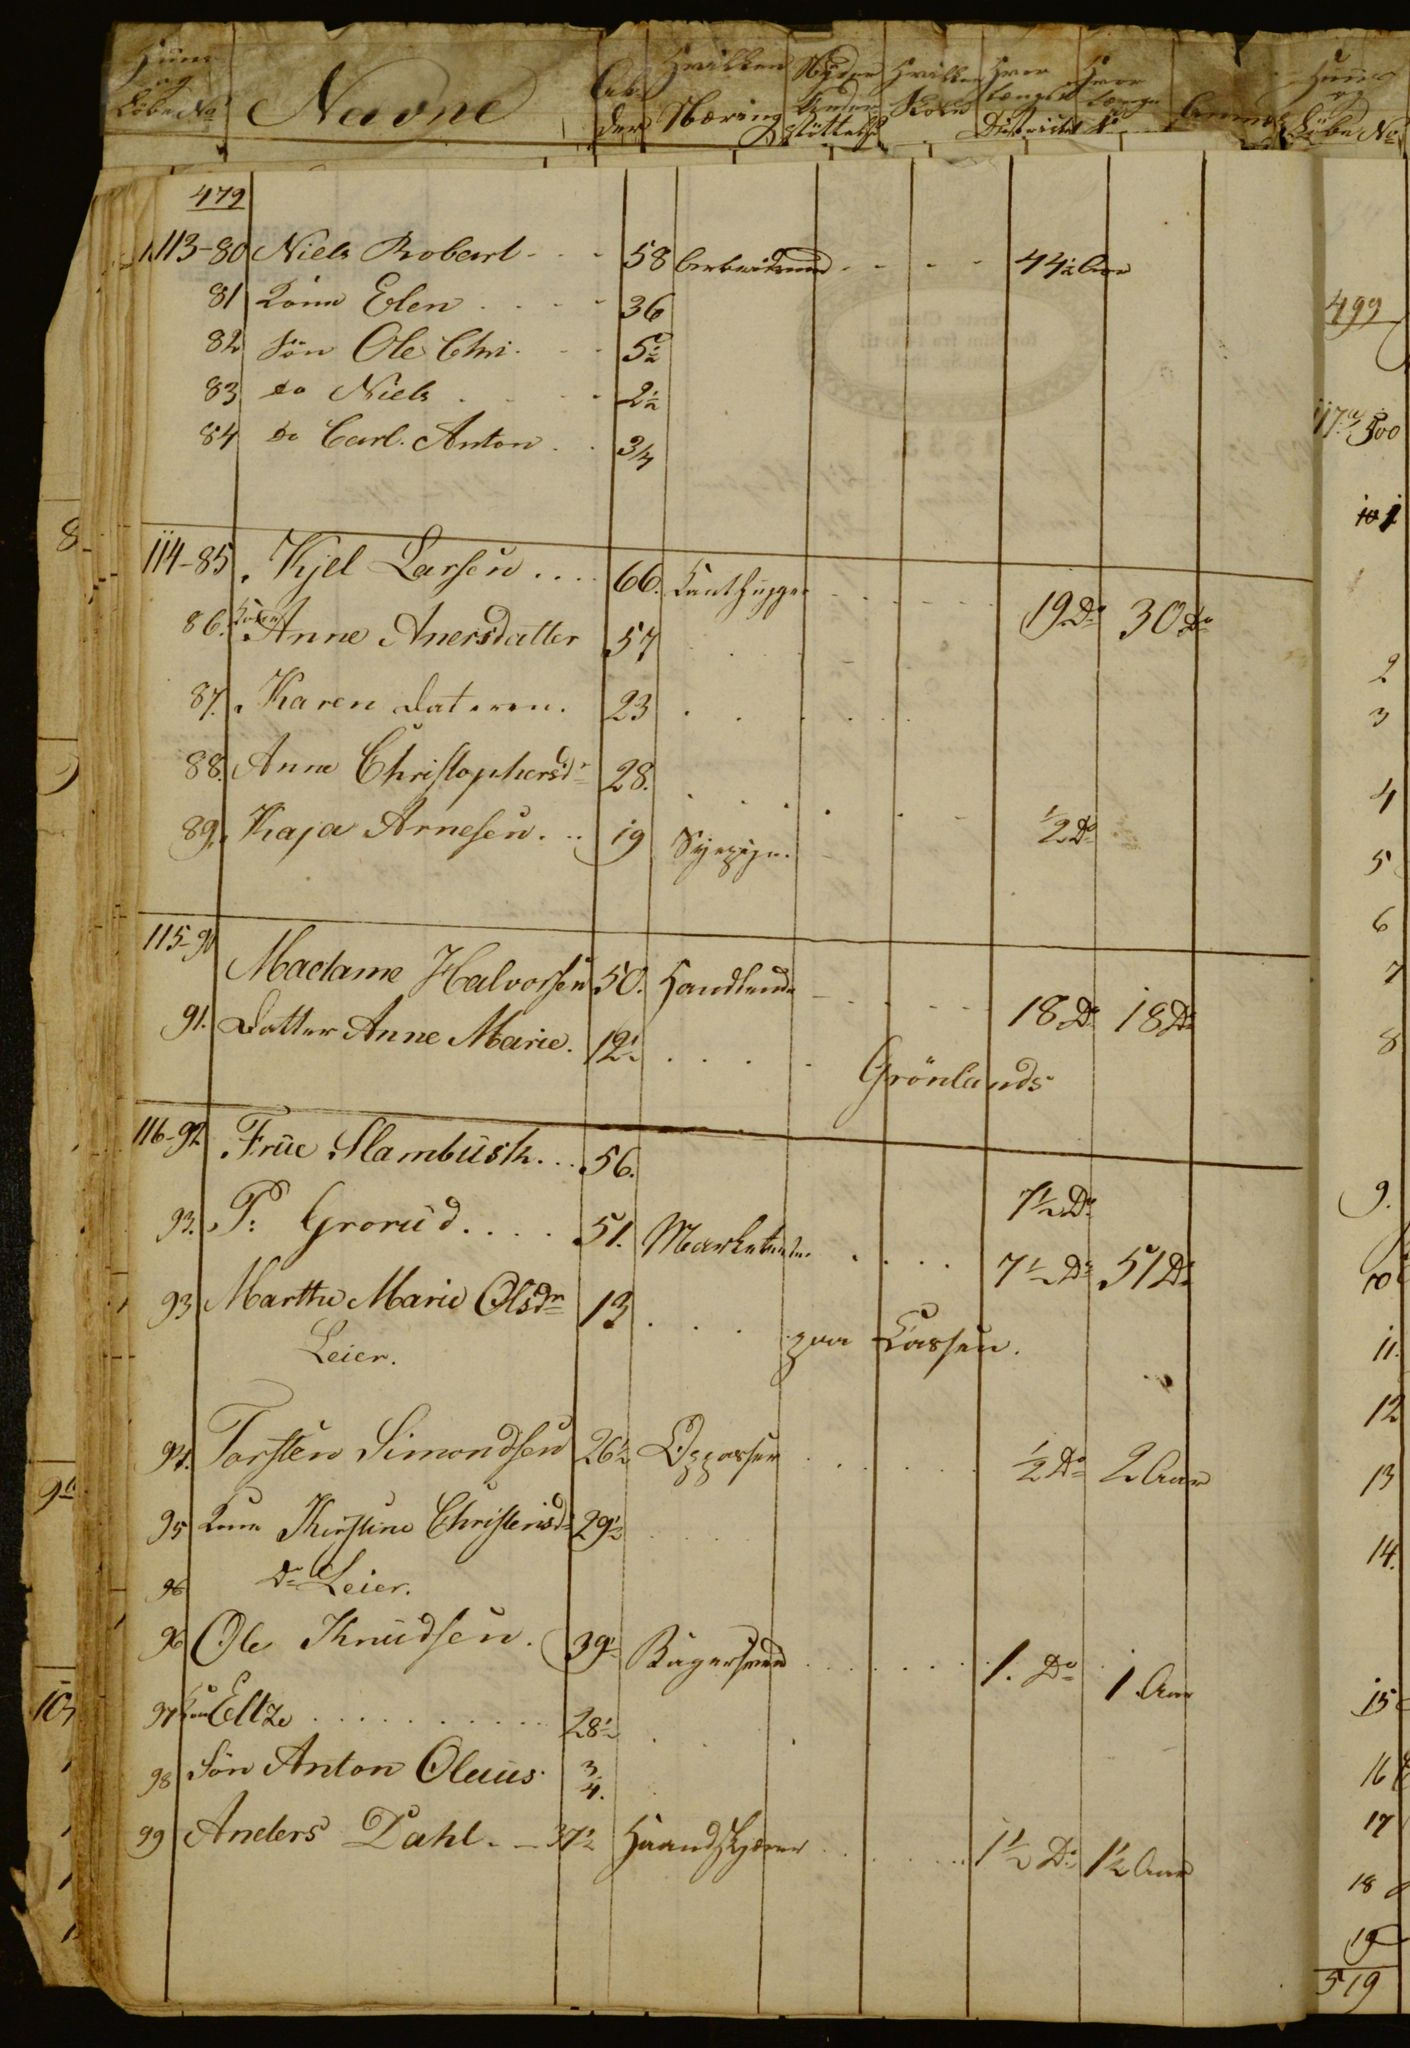 Huus og Löbe No Navne Al-der Hvilken Næring Nyder Under-stöttelse Hvilken Skole Hvor længe i Districtet Hvor længe
Huus og Löbe No
479
113-80 Niels Robarl 58 Arbeidsmand 44½ Aar
81 Kone Elen 36
82 Sön Ole Chri. 5½
83 do Niels 2½
84 do Carl. Anton 3/4
114-85 Kjel Larsen 66. Tanthugger 19 Do 30 Do
86. Konen Anne Anersdatter 57
87. Karen Dateren. 23
88. Anne Christophersdr 28.
89. Kaja Arnesen. 19 Syepige. ½ Do
115-90 Madame Halvorsen 50. Handlende 18 Do 18 Do
91. Datter Anne Marie. 12½ Grönlands
116-92 Frue Slambusk 56. 7½ Do
93. P: Grorud 51. Marketenter 7½ Do 51 Do
93 Marthe Marie Olsdr 13 paa Cassen.
Leier.
94. Torsten Simondsen 26½ Oppasser ½ Do 2 Aar
95 Kone Kirstine Christensdr 29½
96 Do Leier.
96 Ole Knudsen. 39½ Bagersvend 1. Do 1 Aar
97 Kone Eltze 28½
98 Sön Anton Oluus 3/4.
99 Anders Dahl 37½ Haandskjærer 1½ Do 1½ Aar
499
117 a 500
101
2
3
4
5
6
7
8
9.
10
11.
12
13
14.
15
16
17
18
19
519